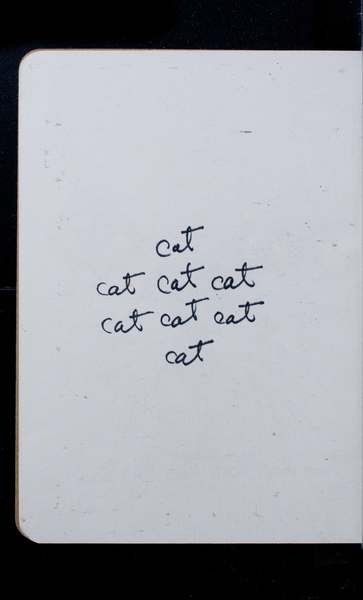 cat
cat cat cat
cat cat cat
cat